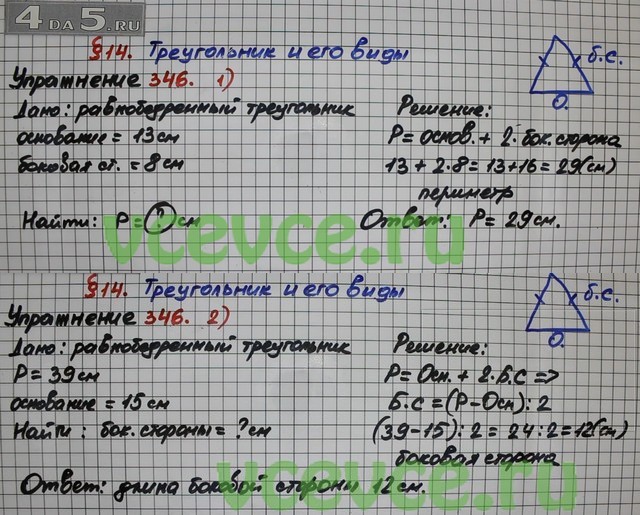 4 ДА 5.RU
§14. Треугольник и его виды
Упражнение 346. 1)
б.с.
О.
Дано: равнобедренный треугольник
основание = 13 см
боковая ст. = 8 см
Найти: P = ? см
Решение:
P = основ. + 2·бок. сторона
13 + 2·8 = 13+16 = 29(см)
периметр
Ответ: P = 29 см.
vcevce.ru
§14. Треугольник и его виды
Упражнение 346. 2)
б.с.
О.
Дано: равнобедренный треугольник
P = 39 см
основание = 15 см
Найти: бок. стороны = ? см
Решение:
P = Осн. + 2·Б.С =>
Б.С = (P-Осн):2
(39-15):2 = 24:2 = 12(см)
боковая сторона
Ответ: длина боковой стороны 12 см.
vcevce.ru